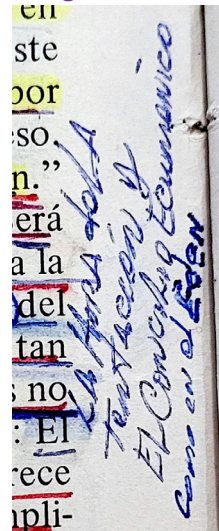 en
ste
por
so,
n.”
erá
a la
del
tan
s no
: El
rece
npli-
La Hora de la
Tentación y
El Concilio Ecumenico
como en el Eden